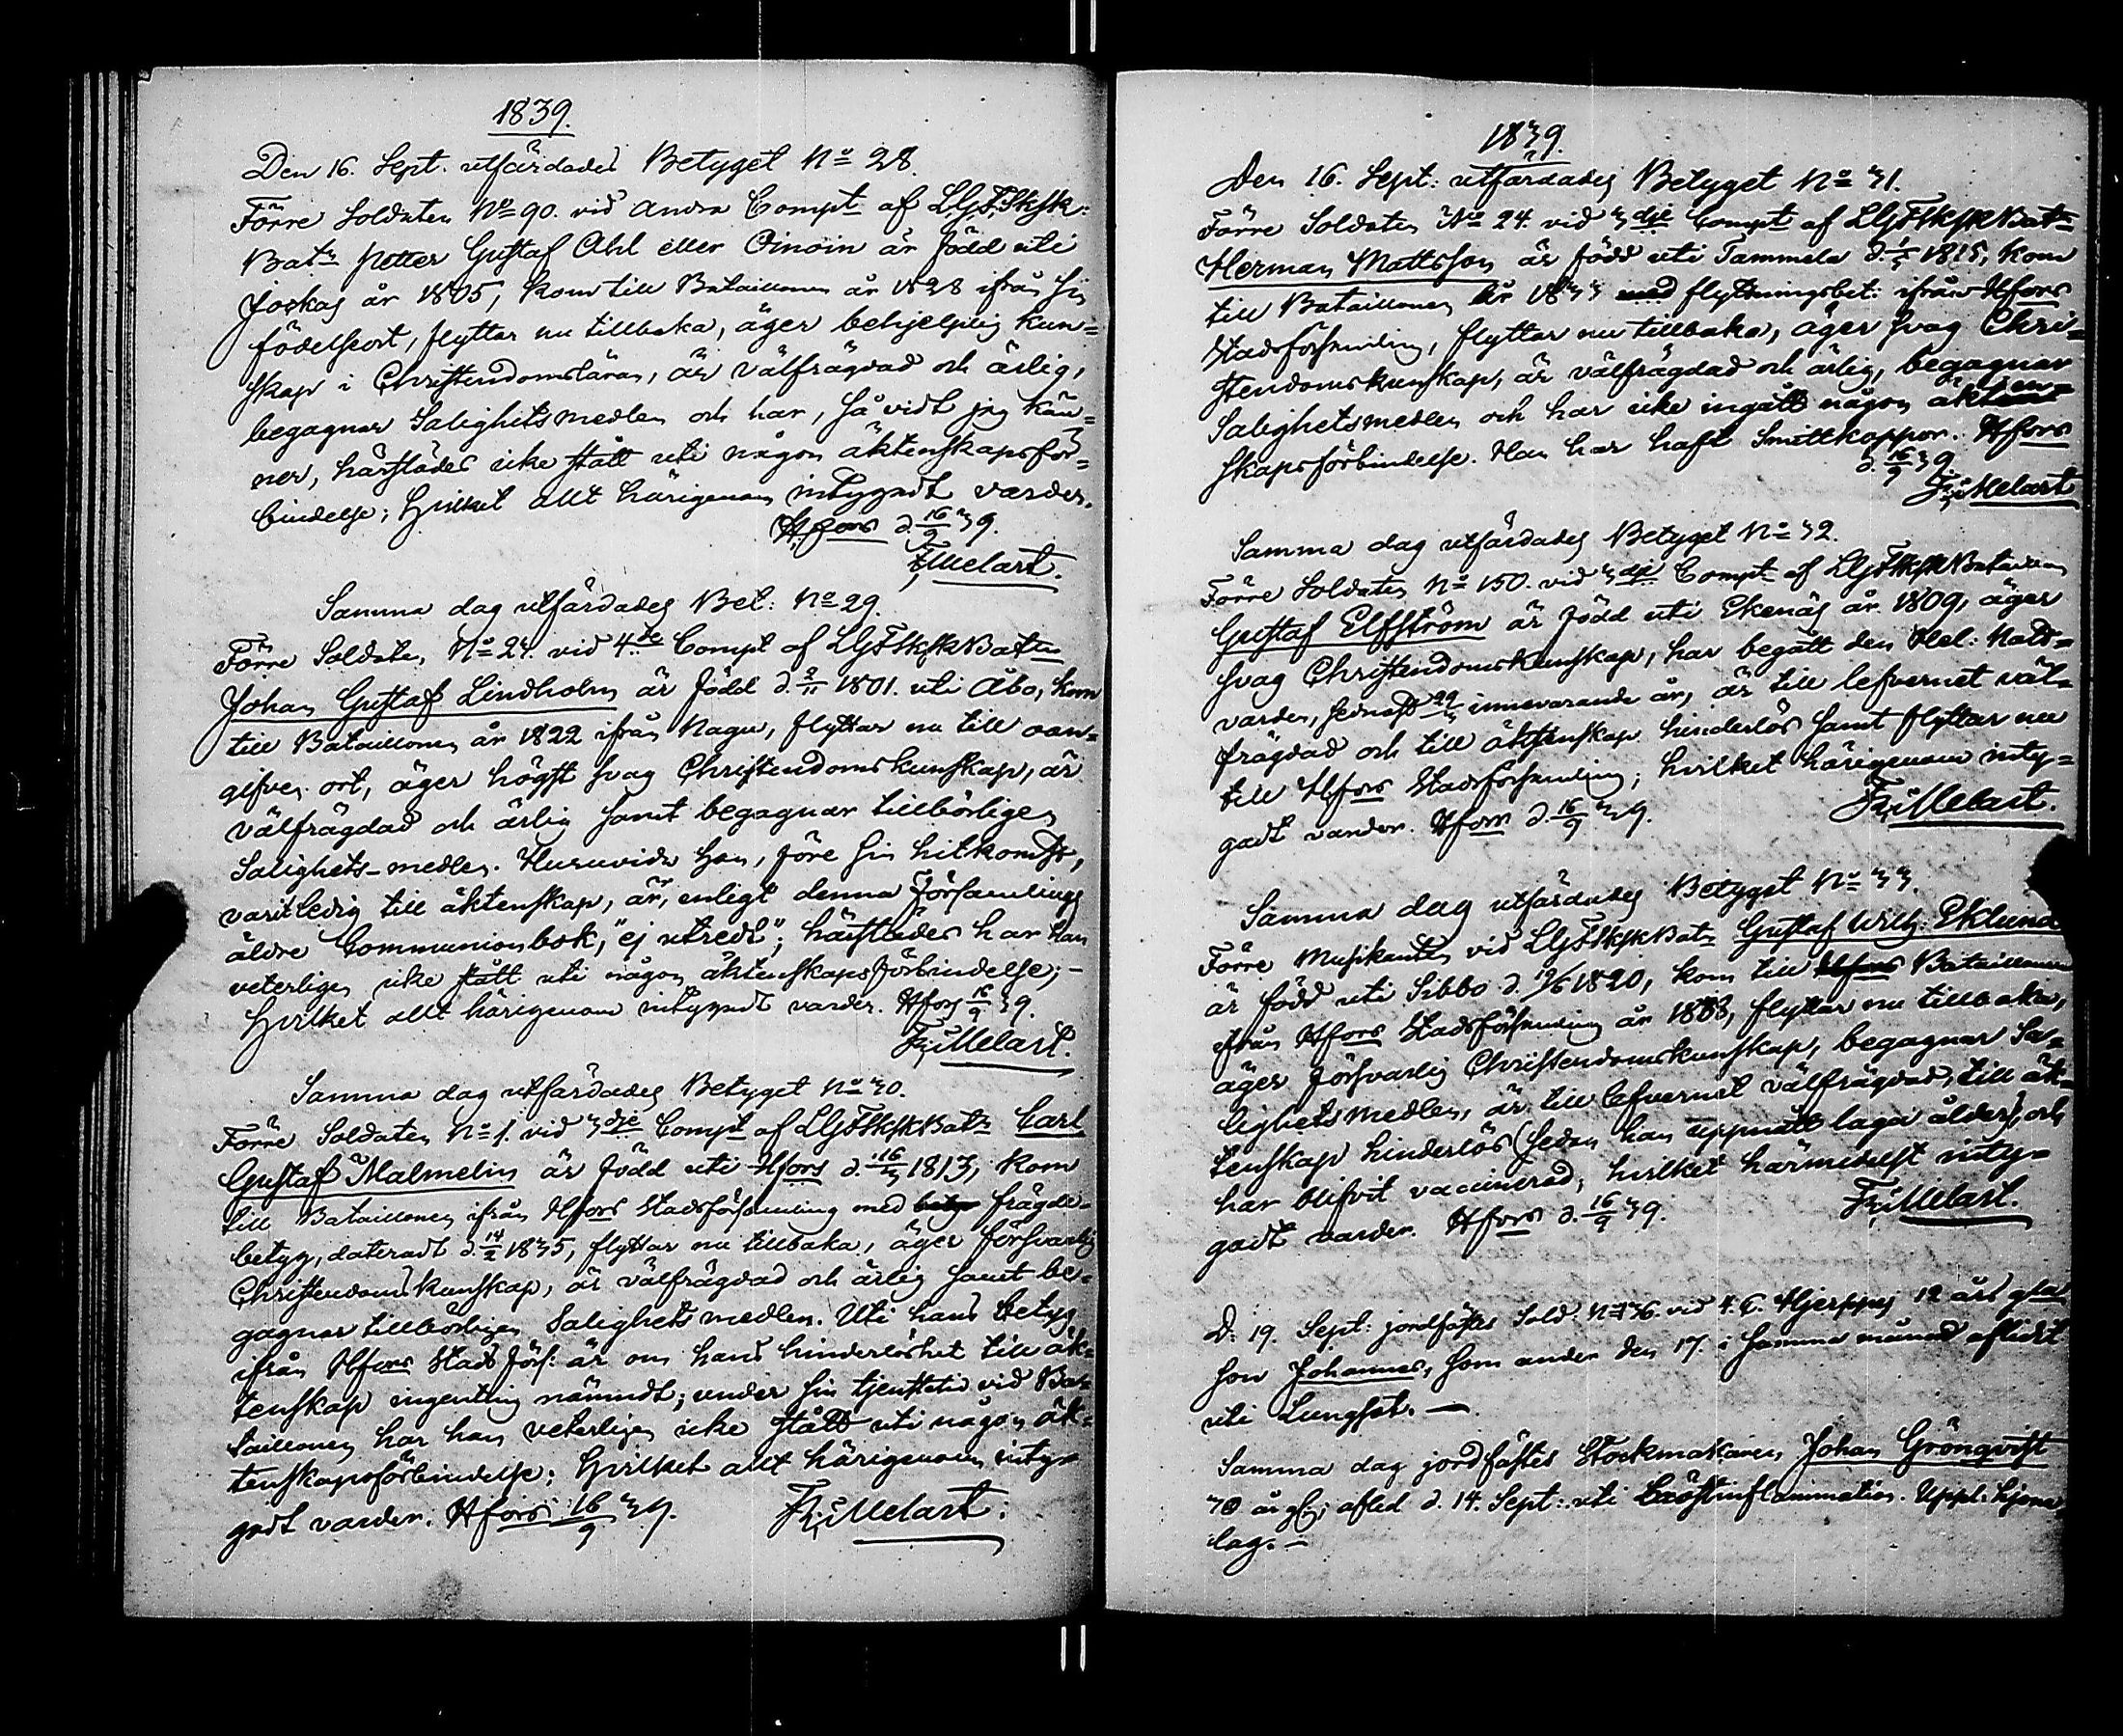 1839.
Den 16. Sept. utfärdades Betyget No 28.
Förre Soldaten No 90. vid Andra Compt af LGFSkSk:
Batn Petter Gustaf Ahl eller Oinoin är född uti
Jockas år 1805, kom till Bataillonen år 1828 ifrån sin
födelseort, flyttar nu tillbaka, äger behjelplig kun=
skap i Christendomsläran, är välfrägdad och ärlig,
begagnar Salighetsmedlen och har, så vidt jag kän=
ner, härstädes icke stått uti någon äktenskapsför=
bindelse; Hvilket allt härigenom intygadt varder.
Hfors d. 16/9 39.
F: Melart.
Samma dag utfärdades Bet: No 29.
Förre Soldaten No 24. vid 4.de Compt af LGFSkSkBatn
Johan Gustaf Lindholm är född d. 2/11 1801. uti Åbo, kom
till Bataillonen år 1822 ifrån Nagu, flyttar nu till oan=
gifven ort, äger högst svag Christendomskunskap, är
välfrägdad och ärlig samt begagnar tillbörligen
Salighets-medlen. Huruvida han, före sin hitkomst,
varit ledig till äktenskap, är, enligt denna Församlings
äldre Communionbok, "ej utredt"; härstädes har han
veterligen icke stått uti någon äktenskapsförbindelse; -
Hvilket allt härigenom intygadt varder. Hfors 16/9 39.
F: Melart.
Samma dag utfärdades Betyget No 30.
Förre Soldaten No 1. vid 3dje Compt af LGFSkSkBatn Carl
Gustaf Malmelin är född uti Hfors d. 16/3 1813, kom
till Bataillonen ifrån Hfors Stadsförsamling med frägde-
betyg, dateradt d. 14/2 1835, flyttar nu tillbaka, äger försvarlig
Christendomskunskap, är välfrägdad och ärlig samt be=
gagnar tillbörligen Salighetsmedlen. Uti hans betyg
ifrån Hfors Stads Förs: är om hans hinderlöshet till äk=
tenskap ingenting nämndt; under sin tjenstetid vid Ba=
taillonen har han veterligen icke stått uti någon äk=
tenskapsförbindelse; Hvilket allt härigenom inty=
gadt varder. Hfors 16/9 39. F: Melart.
1839.
Den 16. Sept: utfärdades Betyget No 31.
Förre Soldaten No 24. vid 3dje Compt af LGFSkSkBatn
Herman Mattsson är född uti Tammela d. 1/3 1815, kom
till Bataillonen år 1833 med flyttningsbet: ifrån Hfors
Stadsförsamling, flyttar nu tillbaka, äger svag Chri=
stendomskunskap, är välfrägdad och ärlig, begagnar
Salighetsmedlen och har icke ingått någon äkten=
skapsförbindelse. Han har haft Smittkoppor. Hfors
d. 16/9 39
F: Melart
Samma dag utfärdades Betyget No 32.
Förre Soldaten No 150. vid 3dje Compt af LGFSkSkBataillon
Gustaf Elfström är född uti Ekenäs år 1809, äger
svag Christendomskunskap, har begått den Hel: Natt=
varden, senast 29/3 innevarande år, är till lefvernet väl=
frägdad och till äktenskap hinderlös samt flyttar nu
till Hfors Stadsförsamling; hvilket härigenom inty=
gadt varder. Hfors d. 16/9 39. F: Melart.
Samma dag utfärdades Betyget No 33.
Förre Musikanten vid LGFSkSkBatn Gustaf Wilh: Eklund
är född uti Sibbo d. 19/6 1820, kom till Bataillonen
ifrån Hfors Stadsförsamling år 1833, flyttar nu tillbaka,
äger försvarlig Christendomskunskap, begagnar Sa=
lighetsmedlen, är till lefvernet välfrägdad, till äk=
tenskap hinderlös (sedan han uppnått laga ålder), och
har blifvit vaccinerad; hvilket härmedelst inty=
gadt varder. Hfors d. 16/9 39. F: Melart.
D. 19. Sept: jordfästes Sold: No 136. vid 4. C. Hjerppes 12 års gla
son Johannes, som andra den 17. i samma månad aflidit
uti Lungsot. -
Samma dag jordfästes Stockmakaren Johan Grönqvist
70 år gl; afled d. 14. Sept: uti Bröstinflammation.
lag. -